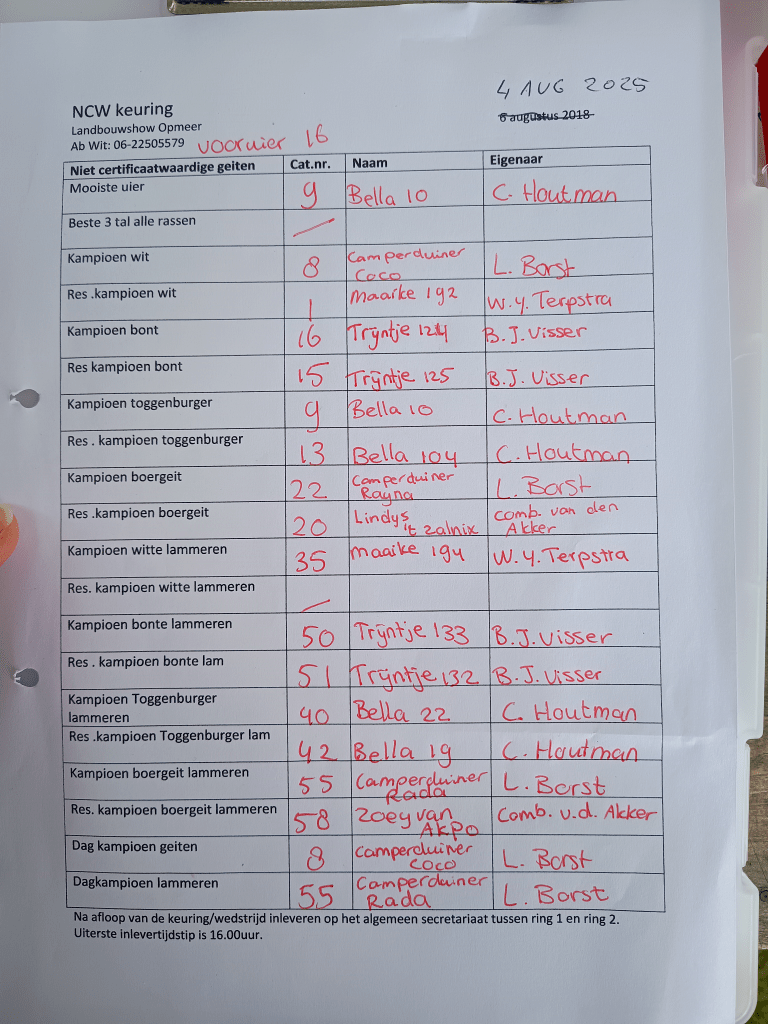 4 AUG 2025
NCW keuring
6 augustus 2018
Landbouwshow Opmeer
Ab Wit: 06-22505579 vooruier 16
Niet certificaatwaardige geiten Cat.nr. Naam Eigenaar
Mooiste uier 9 Bella 10 C. Houtman
Beste 3 tal alle rassen /
Kampioen wit 8 Camperduiner Coco L. Borst
Res .kampioen wit 1 Maaike 192 W.Y. Terpstra
Kampioen bont 16 Trijntje 124 B.J. Visser
Res kampioen bont 15 Trijntje 125 B.J. Visser
Kampioen toggenburger 9 Bella 10 C. Houtman
Res . kampioen toggenburger 13 Bella 104 C. Houtman
Kampioen boergeit 22 Camperduiner Rayna L. Borst
Res .kampioen boergeit 20 Lindys 't Zalnix comb. van den Akker
Kampioen witte lammeren 35 maaike 194 W.Y. Terpstra
Res. kampioen witte lammeren /
Kampioen bonte lammeren 50 Trijntje 133 B.J. Visser
Res . kampioen bonte lam 51 Trijntje 132 B.J. Visser
Kampioen Toggenburger
lammeren 40 Bella 22 C. Houtman
Res .kampioen Toggenburger lam 42 Bella 19 C. Houtman
Kampioen boergeit lammeren 55 Camperduiner Rada L. Borst
Res. kampioen boergeit lammeren 58 Zoey van AKPO Comb. v.d. Akker
Dag kampioen geiten 8 Camperduiner Coco L. Borst
Dagkampioen lammeren 55 Camperduiner Rada L. Borst
Na afloop van de keuring/wedstrijd inleveren op het algemeen secretariaat tussen ring 1 en ring 2.
Uiterste inlevertijdstip is 16.00uur.